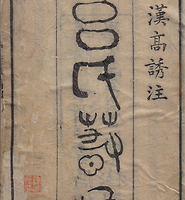 漢高誘注
呂氏春